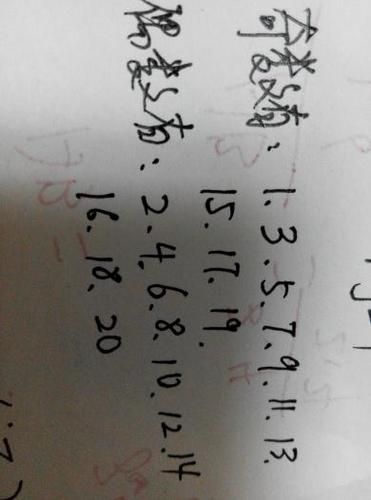 奇数有：1.3.5.7.9.11.13.
15.17.19.
偶数有：2.4.6.8.10.12.14
16.18.20